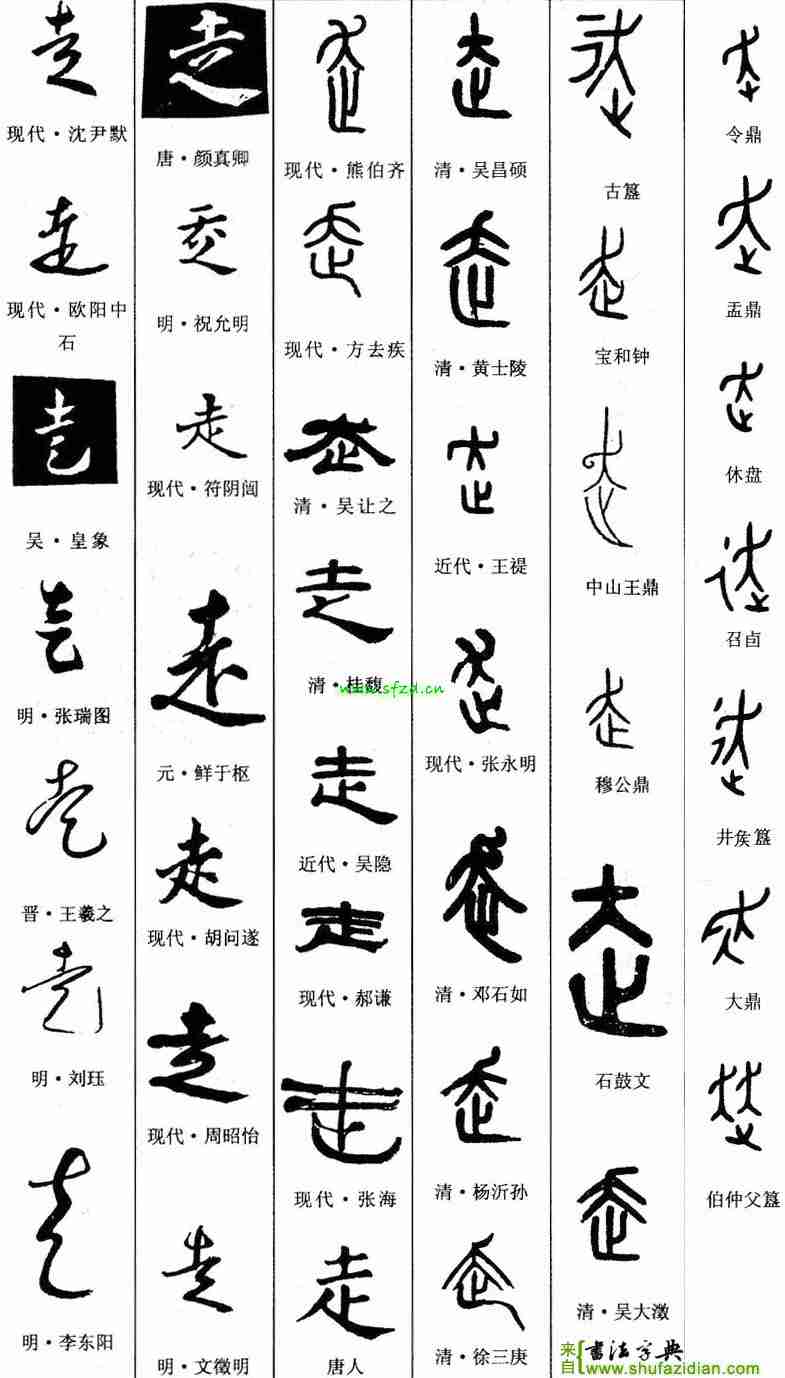 走
现代·沈尹默
走
现代·欧阳中
石
走
吴·皇象
走
明·张瑞图
走
晋·王羲之
走
明·刘珏
走
明·李东阳
走
唐·颜真卿
走
明·祝允明
走
现代·符阴闿
走
元·鲜于枢
走
现代·胡问遂
走
现代·周昭怡
走
明·文徵明
走
现代·熊伯齐
走
现代·方去疾
走
清·吴让之
走
清·桂馥
www.sfzd.cn
走
近代·吴隐
走
现代·郝谦
走
现代·张海
走
唐人
走
清·吴昌硕
走
清·黄士陵
走
近代·王禔
走
现代·张永明
走
清·邓石如
走
清·杨沂孙
走
清·徐三庚
走
古簋
走
宝和钟
走
中山王鼎
走
穆公鼎
走
石鼓文
走
清·吴大澂
来自 书法字典
www.shufazidian.com
走
令鼎
走
盂鼎
走
休盘
走
召卣
走
井侯簋
走
大鼎
走
伯仲父簋